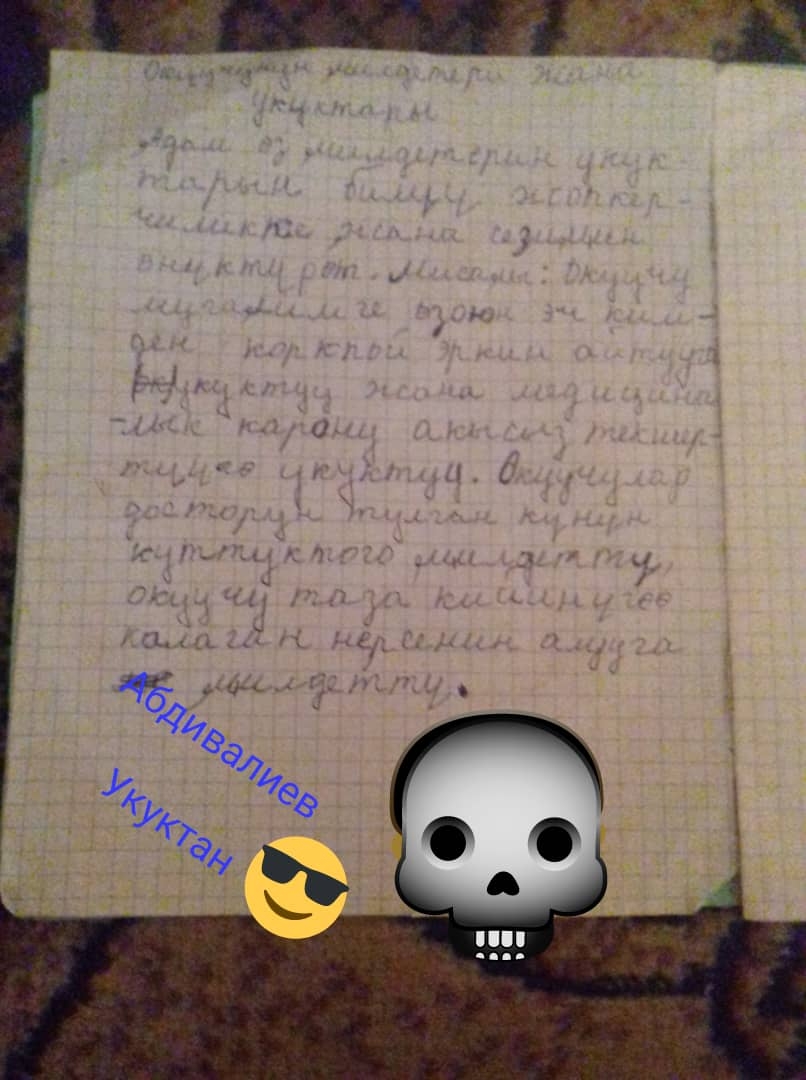 Окуучунун милдетери жана
укуктары
Адам өз милдетерин укук-
тарын билүү жоопкер-
чиликке жана сезимин
өнүктүрөт. Мисалы: Окуучу
мугалимге өзоюн эч ким-
ден коркпой эркин айтууга
укуктуу жана медицина
-лык карону акысыз текшер-
түүгө укуктуу. Окуучулар
досторун тулган күнүн
куттуктого милдетту,
окуучу таза кийинүгөө
калаган нерсенин алууга
милдетту.
Абдивалиев
Укуктан